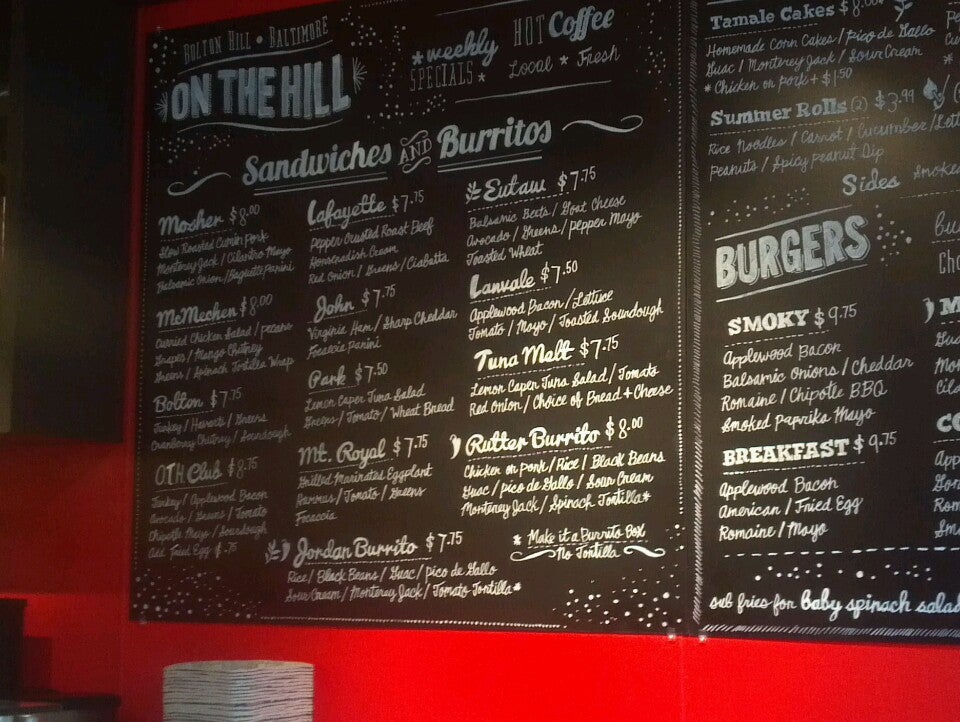 BOLTON HILL • BALTIMORE
ON THE HILL
*weekly
SPECIALS*
HOT Coffee
Local * Fresh
Sandwiches AND Burritos
Mosher $8.00
Slow Roasted Cumin Pork
Monterey Jack / Cilantro Mayo
Balsamic Onion / Baguette Panini
McMechen $8.00
Curried Chicken Salad / pecans
Grapes / Mango Chutney
Greens / Spinach Tortilla Wrap
Bolton $7.75
Turkey / Havarti / Greens
Cranberry Chutney / Sourdough
OTH Club $8.75
Turkey / Applewood Bacon
Avocado / Greens / Tomato
Chipotle Mayo / Sourdough
Add Fried Egg $.75
Lafayette $7.75
Pepper Crusted Roast Beef
Horseradish Cream
Red Onion / Greens / Ciabatta
John $7.75
Virginia Ham / Sharp Cheddar
Focaccia Panini
Park $7.50
Lemon Caper Tuna Salad
Greens / Tomato / Wheat Bread
Mt. Royal $7.75
Grilled Marinated Eggplant
Hummus / Tomato / Greens
Focaccia
Eutaw $7.75
Balsamic Beets / Goat Cheese
Avocado / Greens / pepper Mayo
Toasted Wheat
Lanvale $7.50
Applewood Bacon / Lettuce
Tomato / Mayo / Toasted Sourdough
Tuna Melt $7.75
Lemon Caper Tuna Salad / Tomato
Red Onion / Choice of Bread + Cheese
Rutter Burrito $8.00
Chicken or Pork / Rice / Black Beans
Guac / pico de Gallo / Sour Cream
Monterey Jack / Spinach Tortilla*
Jordan Burrito $7.75
Rice / Black Beans / Guac / pico de Gallo
Sour Cream / Monterey Jack / Tomato Tortilla*
* Make it a Burrito Box
No Tortilla
Tamale Cakes $8.00
Homemade Corn Cakes / pico de Gallo
Guac / Monterey Jack / Sour Cream
* Chicken or pork + $1.50
Summer Rolls (2) $3.99
Rice Noodles / Carrot / Cucumber /
Peanuts / Spicy peanut Dip
Sides
BURGERS
SMOKY $9.75
Applewood Bacon
Balsamic Onions / Cheddar
Romaine / Chipotle BBQ
Smoked Paprika Mayo
BREAKFAST $9.75
Applewood Bacon
American / Fried Egg
Romaine / Mayo
sub fries for baby spinach salad